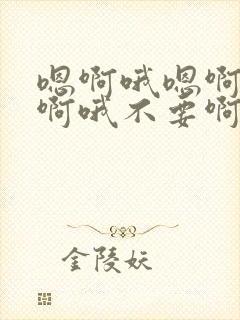 嗯啊哦嗯啊
啊哦不要啊
金陵妖